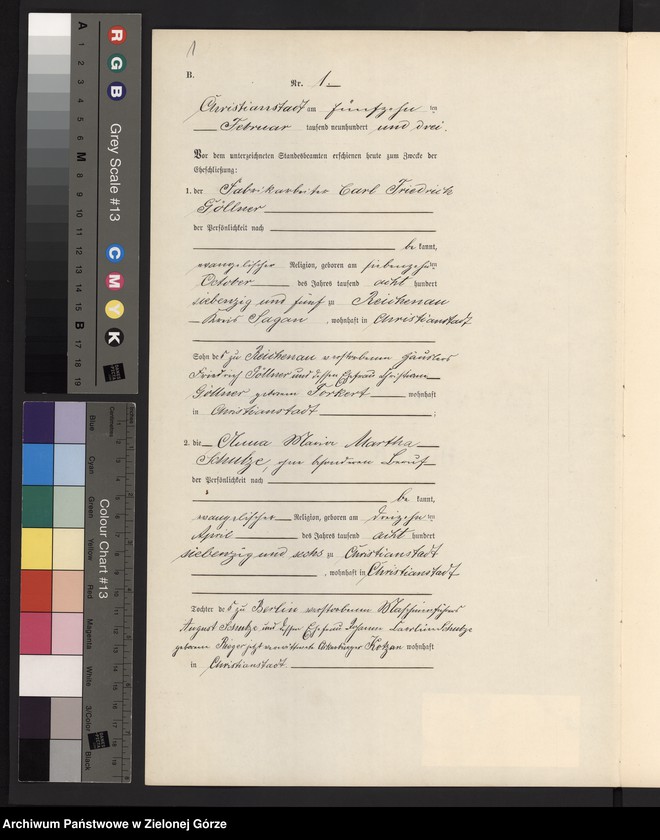 1
B.
Nr. 1.
Christianstadt am fünfzehn ten
Februar tausend neunhundert und drei.
Vor dem unterzeichneten Standesbeamten erschienen heute zum Zwecke der
Eheschließung:
1. der Fabrikarbeiter Carl Friedrich
Göllner
der Persönlichkeit nach
be kannt,
evangelischer Religion, geboren am siebenzehn ten
October des Jahres tausend acht hundert
siebenzig und fünf zu Reichenau
Kreis Sagan, wohnhaft in Christianstadt
Sohn des zu Reichenau verstorbenen Häuslers
Friedrich Göllner und dessen Ehefrau Christiane
Göllner geborene Torkert wohnhaft
in Christianstadt;
2. die Anna Maria Martha
Schulze, ohne besonderen Beruf
der Persönlichkeit nach
be kannt,
evangelischer Religion, geboren am dreizehn ten
April des Jahres tausend acht hundert
siebenzig und sechs zu Christianstadt
, wohnhaft in Christianstadt
Tochter des zu Berlin verstorbenen Maschinenführers
August Schulze und dessen Ehefrau Johanne Schulze
geborene jetzt verwittwete Ackerbürger wohnhaft
in Christianstadt
RGB
Grey Scale #13
CMYK
A 1 2 3 4 5 6 M 8 9 10 11 12 13 14 15 B 17 18 19
Colour Chart #13
Blue
Cyan
Green
Yellow
Red
Magenta
White
3/Color
Black
Centimetres
Inches
Archiwum Państwowe w Zielonej Górze